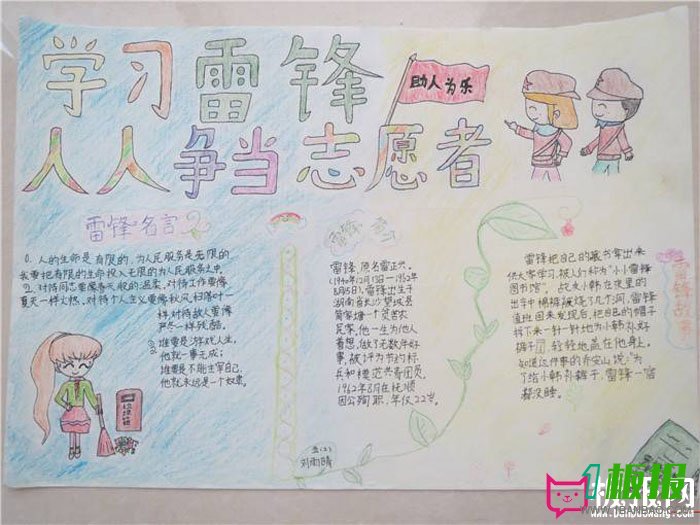 学习雷锋
助人为乐
人人争当志愿者
雷锋名言
①. 人的生命是有限的,为人民服务是无限的
我要把有限的生命投入无限的为人民服务之中
②. 对待同志要像春天般的温柔,对待工作要像
夏天一样火热,对待个人主义要像秋风扫落叶一
样,对待敌人要像
严冬一样残酷.
谁要是游戏人生,
他就一事无成;
谁要是不能主宰自己,
他就永远是一个奴隶。
垃圾箱
雷锋
雷锋,原名雷正兴,
(1940年12月18日—1962年
8月15日),雷锋出生于
湖南省长沙望城县
简家塘一个贫苦农
民家,他一生为他人
着想,做了无数件好
事,被评为节约标
兵和模范共青团员,
1962年8月在抚顺
因公殉职,年仅22岁。
刘雨晴
雷锋故事
雷锋把自己的藏书拿出来
供大家学习,被人们称为“小小雷锋
图书馆”。战友小韩在夜里的
出车中棉裤被烧了几个洞,雷锋
值班回来发现后,把自己的帽子
拆下来一针一针地为小韩补好
裤子,轻轻地盖在他身上,
知道这件事的乔安山说:“为
了给小韩补裤子,雷锋一宿
都没睡。
1板报